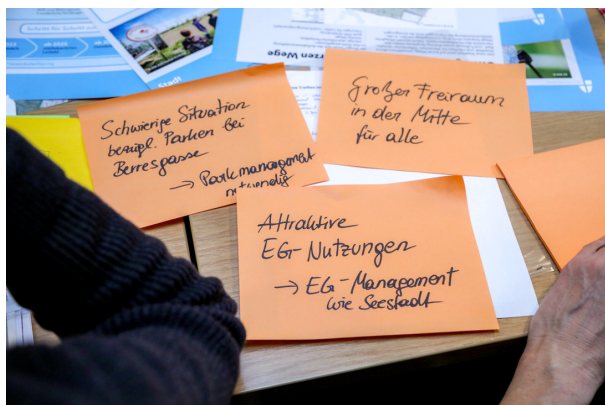 Schritt für Schritt zum
ab 2024
Stadt
rzen Wege
Schwierige Situation
bezügl. Parken bei
Berresgasse
→ Parkmanagement
notwendig
Großer Freiraum
in der Mitte
für alle
Attraktive
EG-Nutzungen
→ EG-Management
wie Seestadt